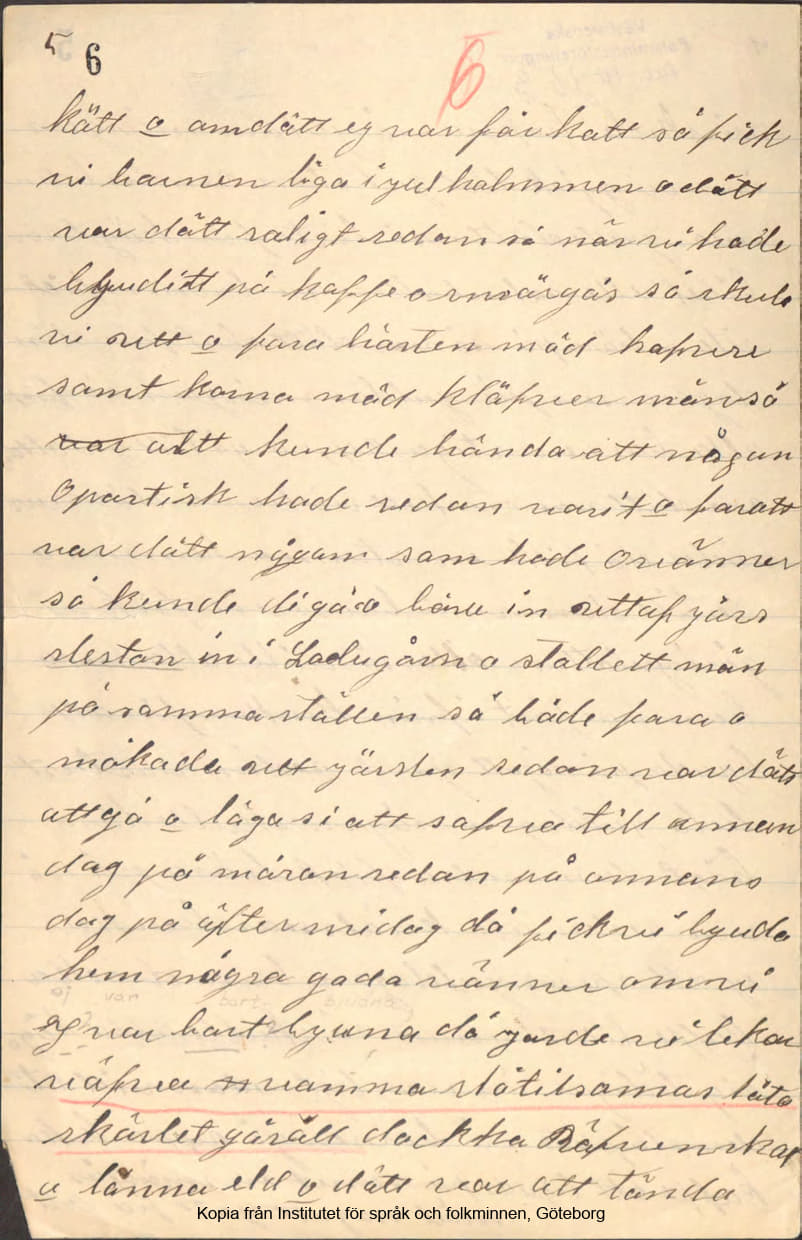 5 6 6
kått o omdått ej var får katt så fick
vi barnen liga i jul halmmen o dått
var dått roligt sedan så när vi hade
bjuditt på kaffe o smärgås så skule
vi utt o fara hästen måd hafvre
samt korna måd kläfver mån så
var altt kunde hända att någon
Opartisk hade redan varit o faratt
var dått någon som hade Ovänner
så kunde di gå o bära in utt af
slestan in i Ladugårn o stallett mån
på samma ställen så både fara o
måkade utt sedan var dått
att gå o läga si att såfva till annan
dag på måron sedan på annans
dag på äfter midag då fick vi bjuda
hem några goda vänner om vi
ej var bort bjuna då jorde vi lekar
väfva vamma låta
skärlet gäråll dockka Räfven
o lånna eld o dått var att tända
Kopia från Institutet för språk och folkminnen, Göteborg